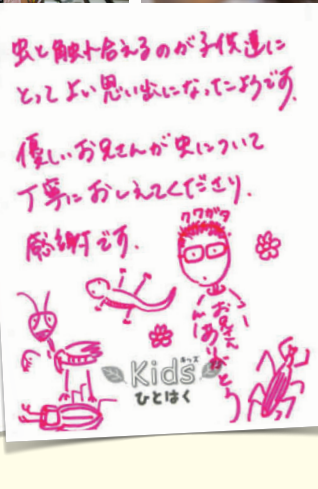 虫と触れ合えるのが子供達に
とってよい思い出になったようです。
優しいお兄さんが虫について
丁寧におしえてくださり、
感謝です。
クワガタ
お兄さん
ありがとう
キッズ
Kids
ひとはく